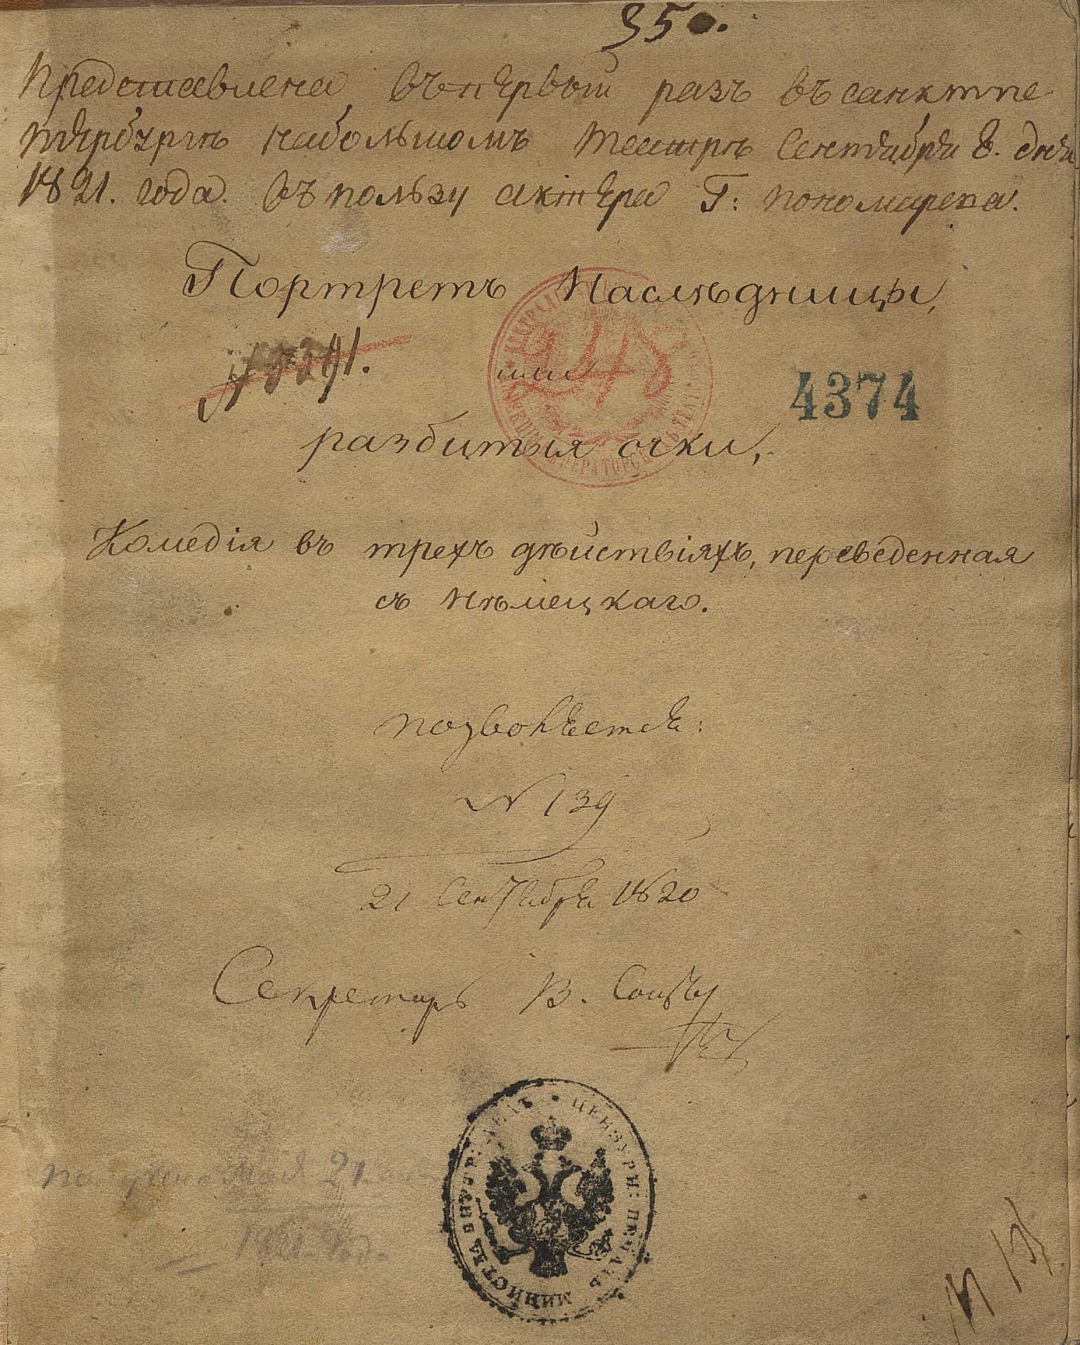 350.
Представлена въ первый разъ въ санктпе
тербургѣ на большомъ театрѣ Сентября 8. дня
1821. года. въ пользу актера Г: пономарева.
Портретъ Наслѣдницы,
или
разбитыя очки,
4374
Комедія въ трехъ дѣйствіяхъ, переведенная
съ Нѣмецкаго.
позволяется:
N 139
21 Сентября 1820
Секретарь В. Соцъ
ЦЕНЗУРН: ПЕЧАТЬ МИНИСТВА ВНУТР: ДѢЛЪ
получена Мая 21